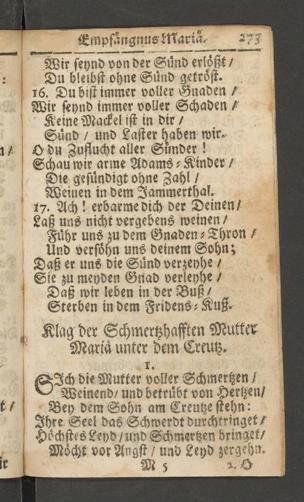 Empfängnus Mariä. 273
Wir seynd von der Sünd erlößt /
Du bleibst ohne Sünd getröst.
16. Du bist immer voller Gnaden /
Wir seynd immer voller Schaden /
Keine Mackel ist in dir /
Sünd / und Laster haben wir.
O du Zuflucht aller Sünder !
Schau wir arme Adams-Kinder /
Die gesündigt ohne Zahl /
Weinen in dem Jammerthal.
17. Ach ! erbarme dich der Deinen /
Laß uns nicht vergebens weinen /
Führ uns zu dem Gnaden-Thron /
Und versöhn uns deinem Sohn;
Daß er uns die Sünd verzeyhe /
Sie zu meyden Gnad verleyhe /
Daß wir leben in der Buß /
Sterben in dem Fridens-Kuß.
Klag der Schmertzhafften Mutter
Mariä unter dem Creutz.
1.
SIch die Mutter voller Schmertzen /
Weinend / und betrübt von Hertzen /
Bey dem Sohn am Creutze stehn:
Ihre Seel das Schwerdt durchtringet /
Höchstes Leyd / und Schmertzen bringet /
Möcht vor Angst / und Leyd zergehn.
M 5 2. O